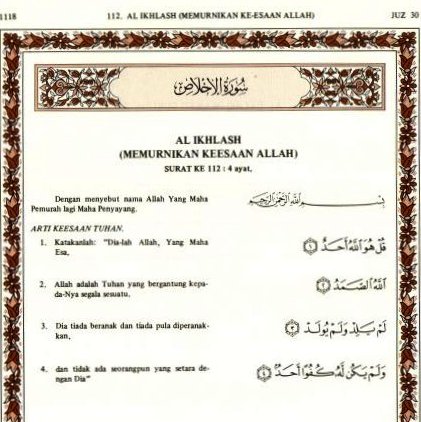 1118
112. AL IKHLASH (MEMURNIKAN KE-ESAAN ALLAH)
JUZ 30
سُورَةُ الْإِخْلَاصِ
AL IKHLASH
(MEMURNIKAN KEESAAN ALLAH)
SURAT KE 112 : 4 ayat.
Dengan menyebut nama Allah Yang Maha
Pemurah lagi Maha Penyayang.
بِسْمِ اللَّهِ الرَّحْمَٰنِ الرَّحِيمِ
ARTI KEESAAN TUHAN.
1. Katakanlah: "Dia-lah Allah, Yang Maha
Esa.
قُلْ هُوَ اللَّهُ أَحَدٌ ﴿١﴾
2. Allah adalah Tuhan yang bergantung kepa-
da-Nya segala sesuatu.
اللَّهُ الصَّمَدُ ﴿٢﴾
3. Dia tiada beranak dan tiada pula diperanak-
kan,
لَمْ يَلِدْ وَلَمْ يُولَدْ ﴿٣﴾
4. dan tidak ada seorangpun yang setara de-
ngan Dia"
وَلَمْ يَكُنْ لَهُ كُفُوًا أَحَدٌ ﴿٤﴾